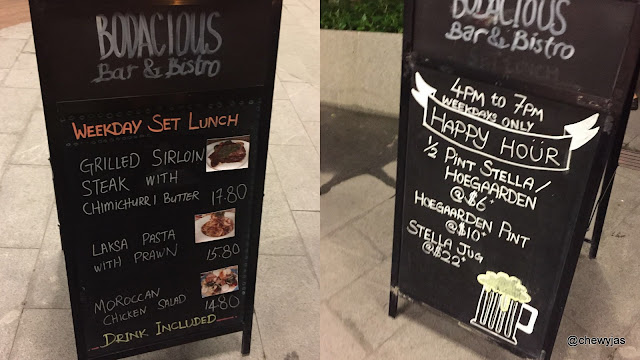 BODACIOUS
Bar & Bistro
WEEKDAY SET LUNCH
GRILLED SIRLOIN
STEAK WITH
CHIMICHURRI BUTTER 17.80
LAKSA PASTA
WITH PRAWN 15.80
MOROCCAN
CHICKEN SALAD 14.80
DRINK INCLUDED
BODACIOUS
Bar & Bistro
4PM to 7PM
WEEKDAYS ONLY
HAPPY HOÜR
1/2 PINT STELLA /
HOEGAARDEN
@$6+
HOEGAARDEN PINT
@$10+
STELLA JUG
@$22+
@chevyjas